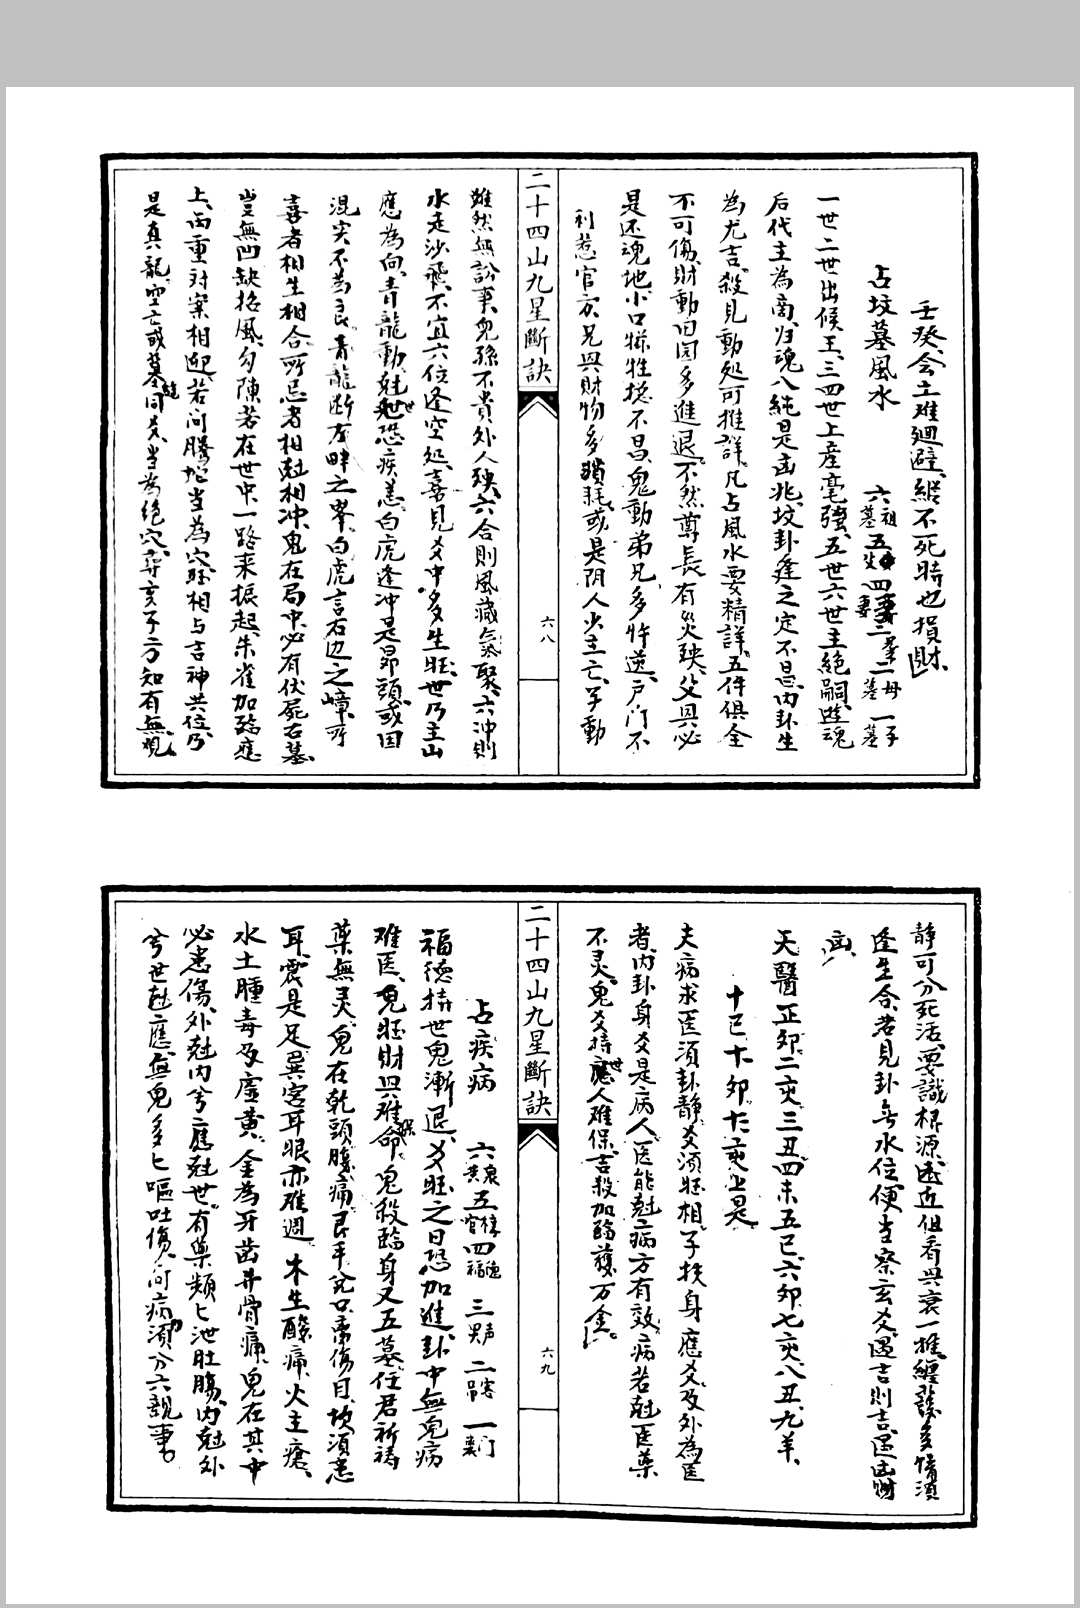 壬癸会土难廻避、縱不死時也損財、
占坟墓風水 六祖墓五父四妻三二母墓一子墓
一世二世出候王、三四世上産毫強、五世六世主絶嗣、遊魂
后代主為商、归魂八純是凶兆、坟卦逢之定不昌、内卦生
為尤吉、殺見動処可推詳、凡占風水要精詳、五件俱全
不可傷、財動田园多進退、不然尊長有災殃、父興必
是还魂地、小口犠牲捻不昌、鬼動弟兄多忤逆、户门不
利惹官方、兄興財物多損耗、或是阴人少主亡、子動
二十四山九星斷訣
六八
雖然無訟事、鬼孫不貴外人殃、六合則風藏氣聚、六冲則
水走沙飛、不宜六位逢空処、喜見爻中多生旺、世乃主山
應為向、青龍動尅世恐疾患、白虎逢冲是昂頭、或因
混实不為良、青龍断左畔之峯、白虎言右边之嶂、所
喜者相生相合、所忌者相尅相冲、鬼在局中、必有伏屍右墓、
豈無凹缺招風、勾陳若在世中、一路来振起、朱雀加臨應
上、两重対案相迎、若问騰蛇当為穴、弱相与吉神共位、乃
是真龍、空亡或墓随同爻、当為絶穴、弃亥子方知有無覌、
静可分死活、要識根源远近、但看興衰一推、纏發多情须
逢生合、若見卦無水位、便当察玄爻、遇吉則吉、遇凶則
凶、
天醫正卯二亥、三丑四未五巳、六卯七亥、八丑、九羊、
十巳十一卯十二亥上是
夫病求医须卦静、爻须旺相、子扶身應爻、及外為医
者、内卦身爻是病人、医能尅病方有效、病若尅医藥
不灵、鬼爻持世應人难保、吉殺加臨護万金。
二十四山九星斷訣
六九
占疾病 六 五 四 三 二 一
福德持世鬼漸退、爻旺之日恐加進、卦中無鬼病
难医、鬼旺財興难保命、鬼殺臨身又五墓、任君祈祷
藥無灵、鬼在乾頭腹痛、艮手兑口离傷目、坎须患
耳、震是足、巽宫耳眼亦难週、木生酸痛、火主瘡、
水土腫毒及虚黄、金為牙齿并骨痛、鬼在其中
必患傷、外尅内兮應尅世、有藥類匕泄肚腸、内尅外
兮世尅應、無鬼多匕嘔吐傷、问病须分六親事